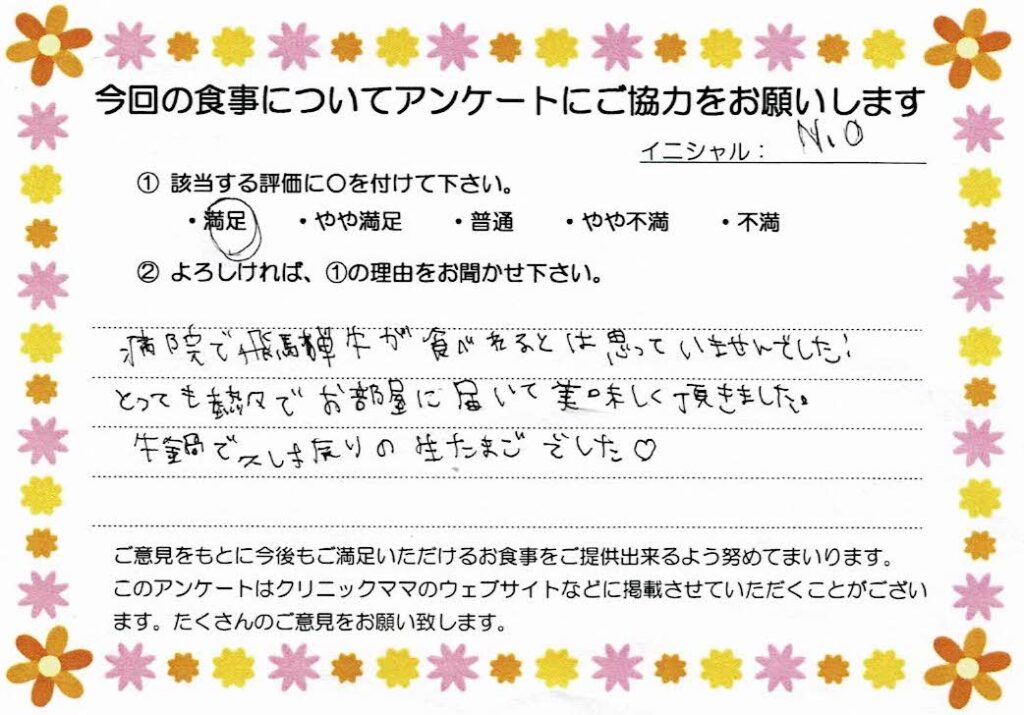 今回の食事についてアンケートにご協力をお願いします
イニシャル： N.O
① 該当する評価に○を付けて下さい。
・満足 ・やや満足 ・普通 ・やや不満 ・不満
② よろしければ、①の理由をお聞かせ下さい。
病院で飛騨牛が食べれるとは思っていませんでした!
とっても熱々でお部屋に届いて美味しく頂きました。
牛鍋で久しぶりの生たまごでした♡
ご意見をもとに今後もご満足いただけるお食事をご提供出来るよう努めてまいります。
このアンケートはクリニックママのウェブサイトなどに掲載させていただくことがござい
ます。たくさんのご意見をお願い致します。